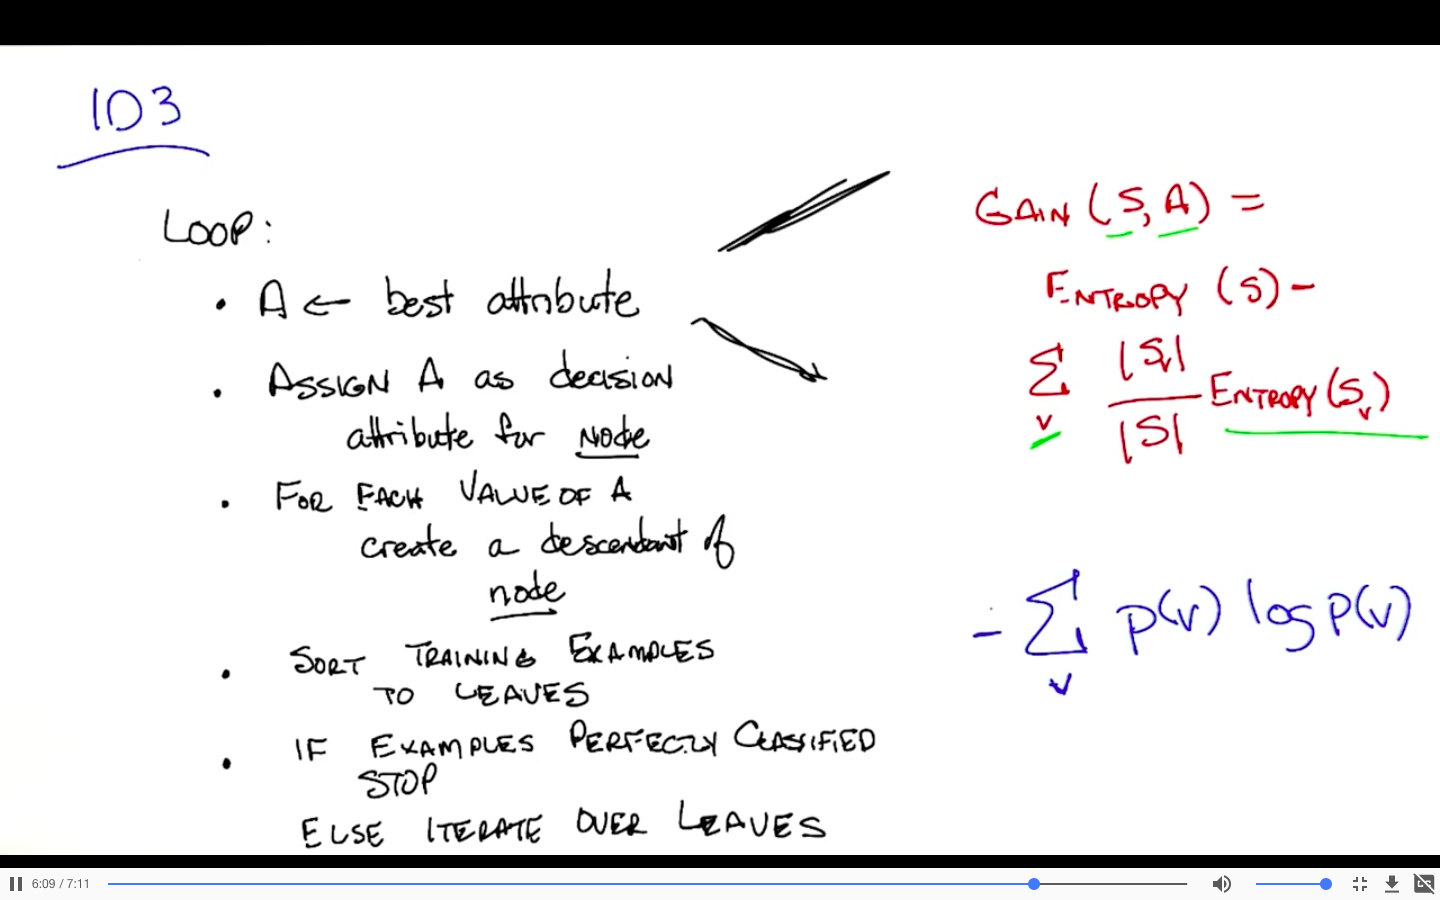 ID3
LOOP:
• A ← best attribute
• ASSIGN A as decision
attribute for NODE
• FOR EACH VALUE OF A
create a descendant of
node
• SORT TRAINING EXAMPLES
TO LEAVES
• IF EXAMPLES PERFECTLY CLASSIFIED
STOP
ELSE ITERATE OVER LEAVES
GAIN (S, A) =
ENTROPY (S) -
Σ_v |S_v| / |S| ENTROPY (S_v)
- Σ_v p(v) log p(v)
6:09 / 7:11